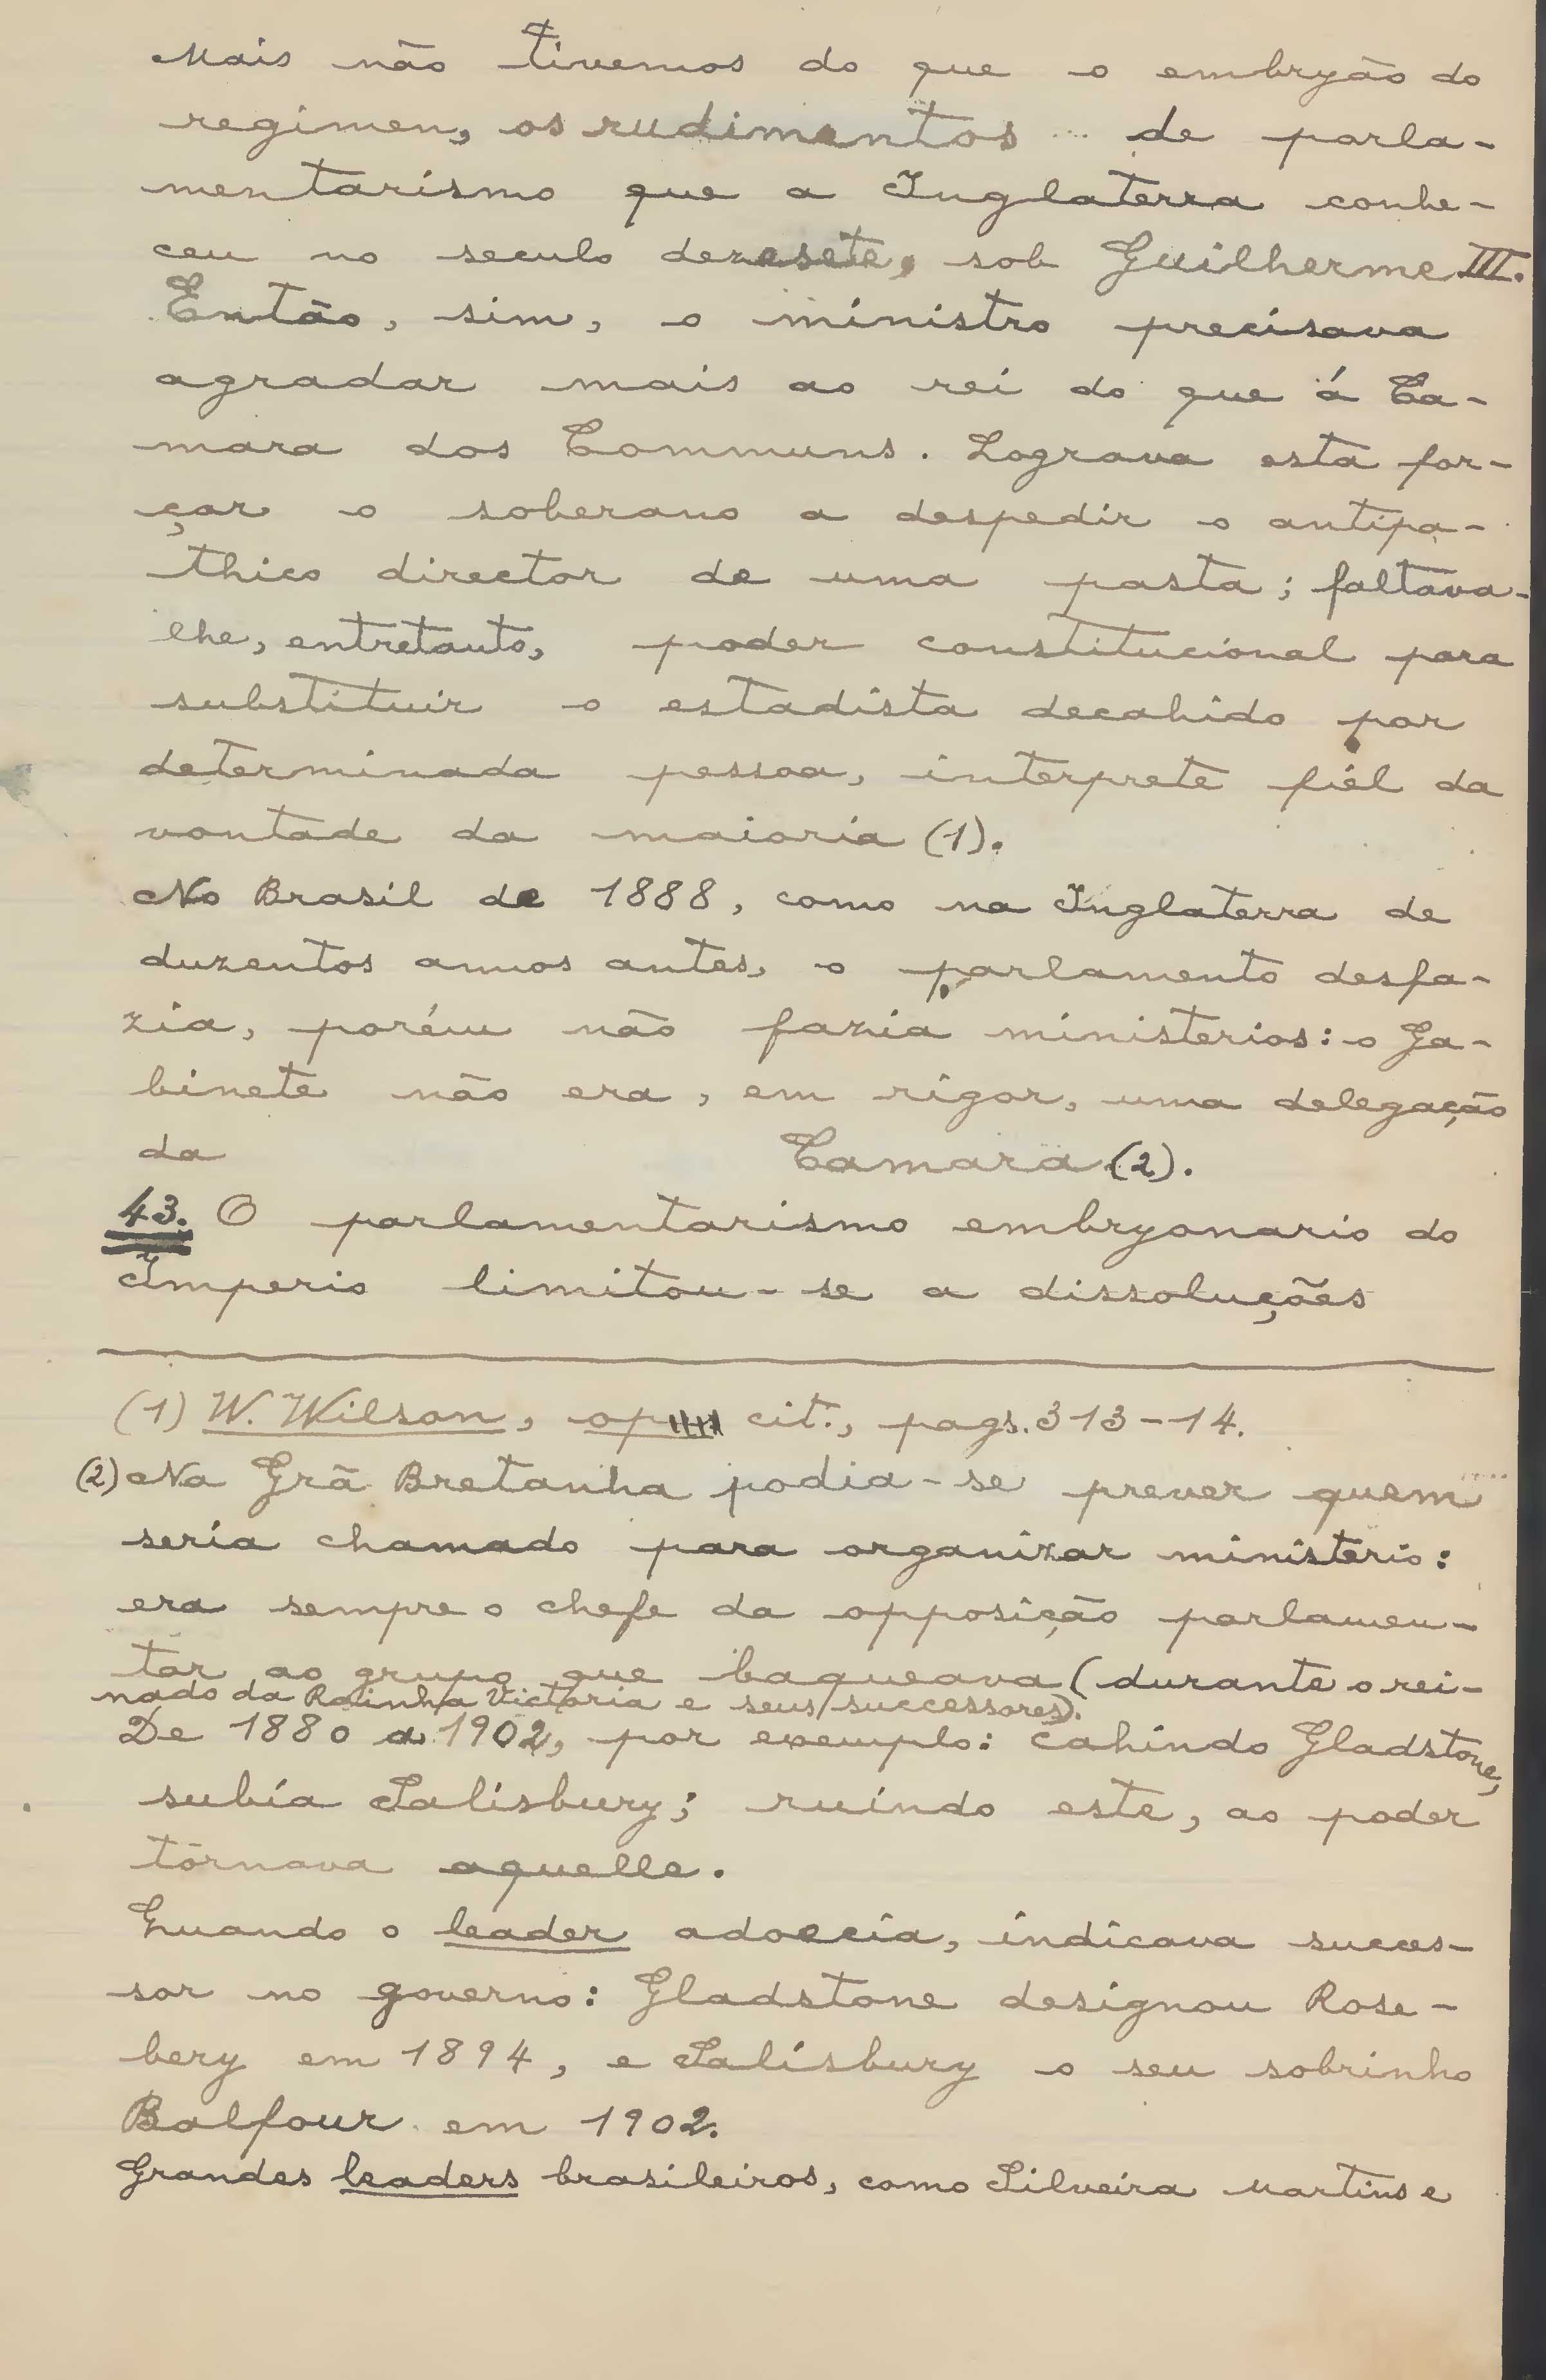 Mais não tivemos do que o embryão do
regimen, os rudimentos de parla-
mentarismo que a Inglaterra conhe-
ceu no seculo dezesete, sob Guilherme III.
Então, sim, o ministro precisava
agradar mais ao rei do que á Ca-
mara dos Communs. Lograva esta for-
çar o soberano a despedir o antipa-
thico director de uma pasta; faltava-
lhe, entretanto, poder constitucional para
substituir o estadista decahido por
determinada pessoa, interprete fiel da
vontade da maioria (1).
No Brasil de 1888, como na Inglaterra de
duzentos annos antes, o parlamento desfa-
zia, porém não fazia ministerios: o Ga-
binete não era, em rigor, uma delegação
da Camara (2).
43. O parlamentarismo embryonario do
Imperio limitou-se a dissoluções
(1) W. Wilson, op. cit., pags. 313-14.
(2) Na Grã Bretanha podia-se prever quem
seria chamado para organizar ministerio:
era sempre o chefe da opposição parlamen-
tar ao grupo que baqueava (durante o rei-
nado da Rainha Victoria e seus successores).
De 1880 a 1902, por exemplo: cahindo Gladstone,
subia Salisbury; ruindo este, ao poder
tornava aquelle.
Quando o leader adoecia, indicava succes-
sor no governo: Gladstone designou Rose-
bery em 1894, e Salisbury o seu sobrinho
Balfour em 1902.
Grandes leaders brasileiros, como Silveira Martins e